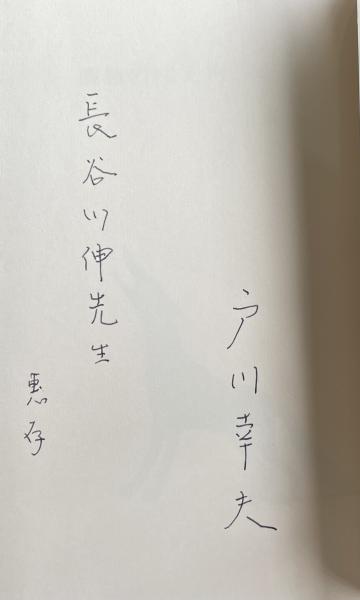 戸川幸夫
長谷川伸先生
恵存